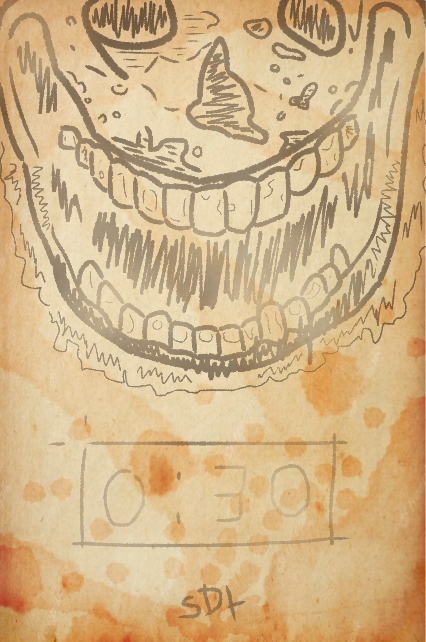 0:30
SDt